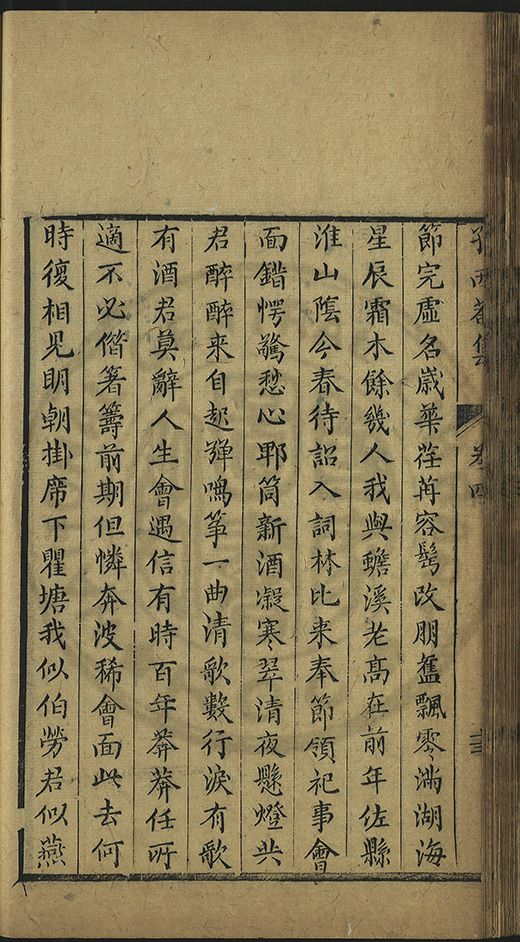 西菴集 卷四
節完虛名歲華荏苒容髩改朋舊飄零滿湖海
星辰霜木餘幾人我與蟾溪老髙在前年佐縣
淮山隂今春待詔入詞林比来奉節領祀事會
面錯愕驚愁心郫筒新酒凝寒翠清夜懸燈共
君醉醉来自起彈鳴筝一曲清歌數行淚有歌
有酒君莫辭人生會遇信有時百年莽莽任所
適不必偺箸籌前期但憐奔波稀會面此去何
時復相見明朝掛席下瞿塘我似伯勞君似燕